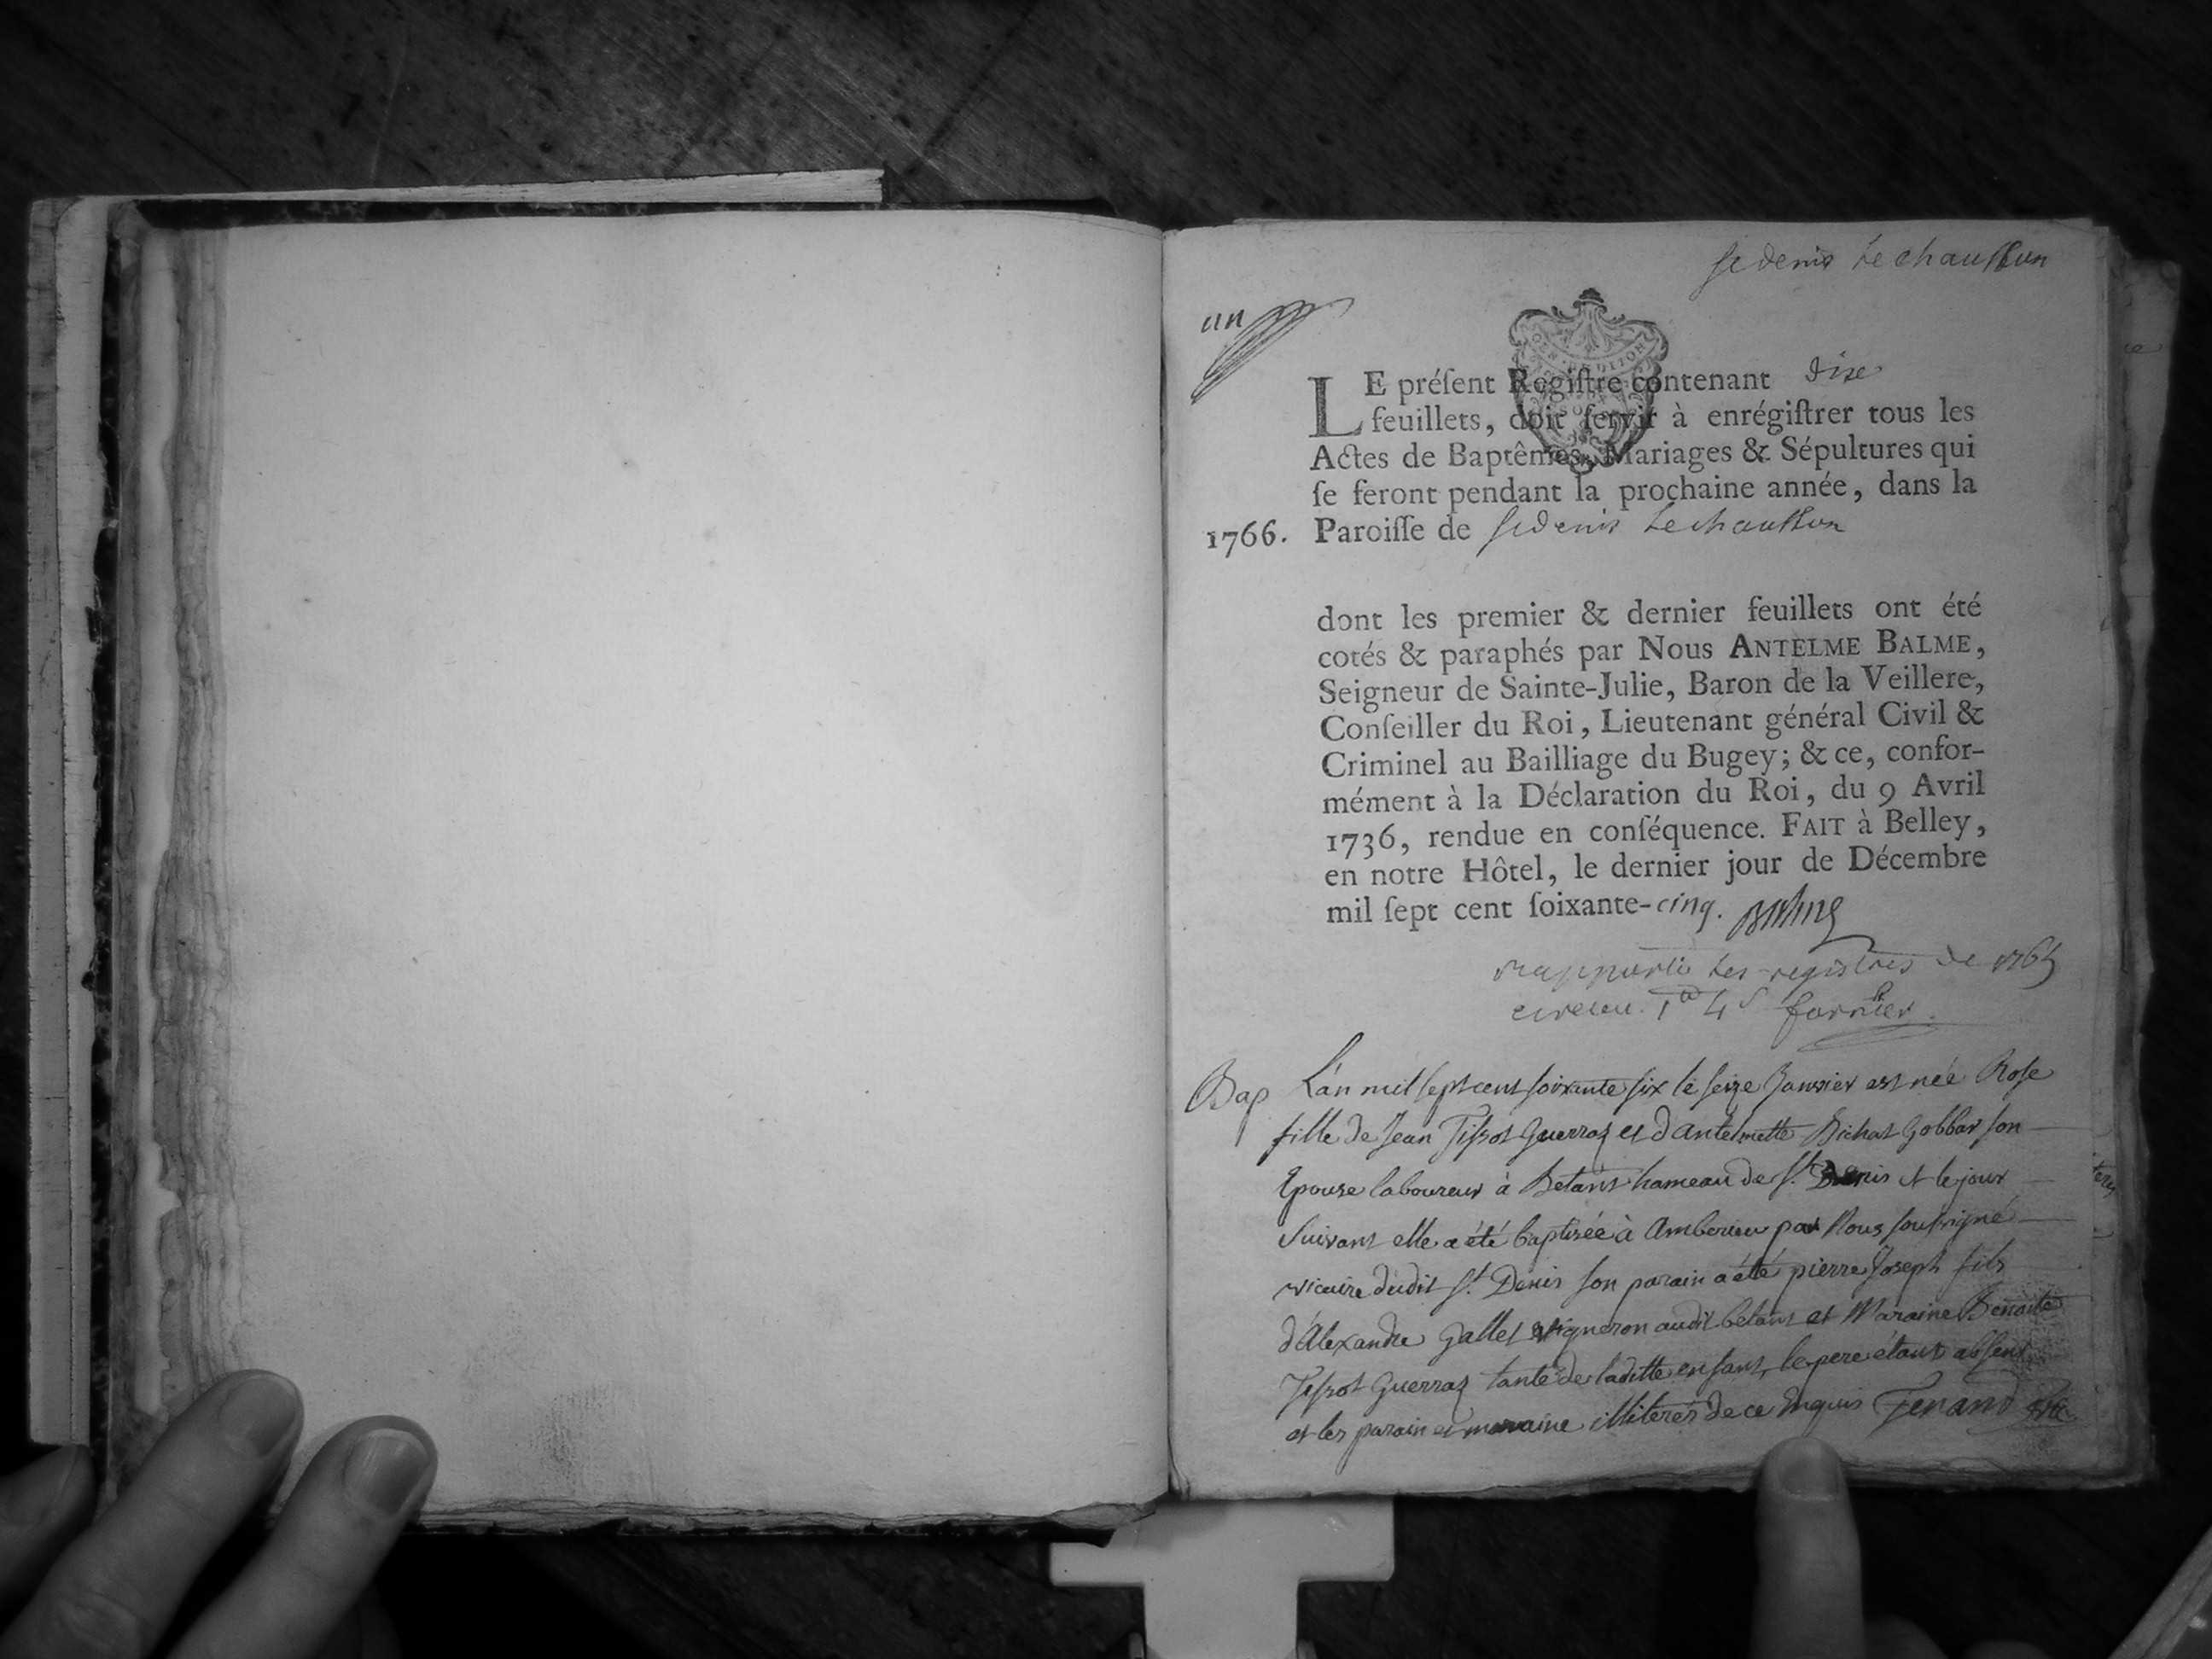 st denis le chausson
un
LE préſent Regiſtre contenant dixe
feuillets, doit ſervir à enrégiſtrer tous les
Actes de Baptêmes, Mariages & Sépultures qui
ſe feront pendant la prochaine année, dans la
1766. Paroiſſe de st denis le chausson
dont les premier & dernier feuillets ont été
cotés & paraphés par Nous ANTELME BALME,
Seigneur de Sainte-Julie, Baron de la Veillere,
Conſeiller du Roi, Lieutenant général Civil &
Criminel au Bailliage du Bugey; & ce, confor-
mément à la Déclaration du Roi, du 9 Avril
1736, rendue en conſéquence. FAIT à Belley,
en notre Hôtel, le dernier jour de Décembre
mil ſept cent ſoixante-cinq. Balme
rapporté les registres de 1765
Bap L'an mil sept cent soixante six le seize Janvier est née Rose
fille de Jean Tissot Guerraz et d'antelmette Bichat Gobbar son
Epouse laboureur à Betans hameau de St. Denis et le jour
suivant elle a été baptisée à Amberieu par Nous soussigné
vicaire dudit St. Denis son parain a été pierre Joseph fils
d'Alexandre Gallet vigneron audit betans et Maraine Benoite
Tissot Guerraz tante de laditte enfant, le pere étant absent
et les parain et maraine illiterés de ce enquis Ferrand vic